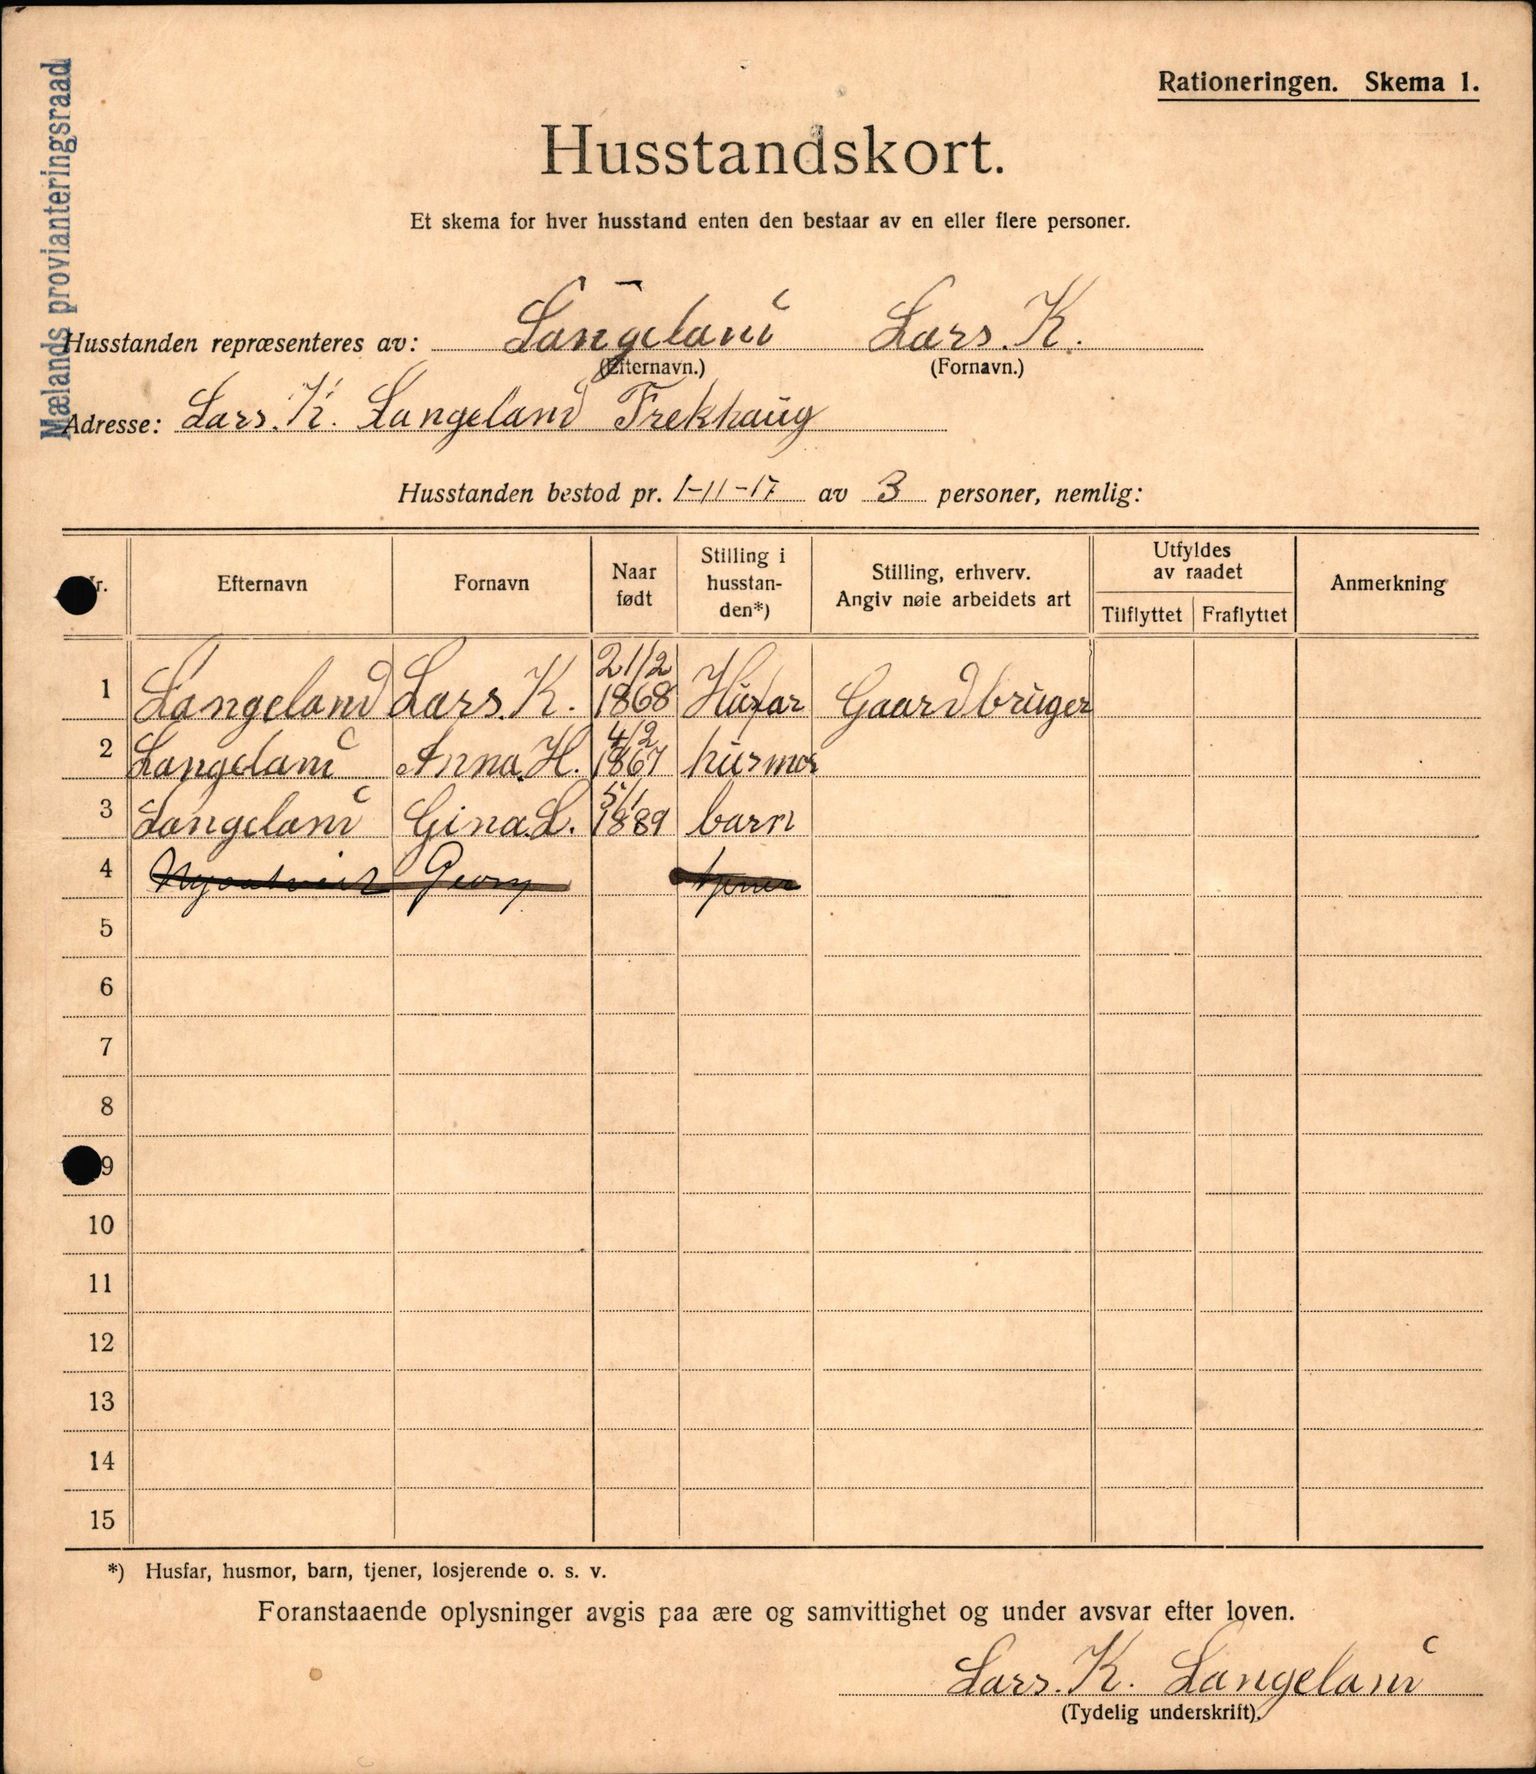 Mælands provianteringsraad
Rationeringen. Skema 1.
Husstandskort.
Et skema for hver husstand enten den bestaar av en eller flere personer.
Husstanden repræsenteres av: Langeland Lars. K.
(Efternavn.) (Fornavn.)
Adresse: Lars. K. Langeland Frekhaug
Husstanden bestod pr. 1-11-17 av 3 personer, nemlig:
Nr. Efternavn Fornavn Naar født Stilling i husstanden*) Stilling, erhverv. Angiv nøie arbeidets art Utfyldes av raadet Tilflyttet Fraflyttet Anmerkning
1 Langeland Lars. K. 21/2 1868 Husfar Gaardbruger
2 Langeland Anna. H. 4/2 1867 husmor
3 Langeland Gina. L. 5/1 1889 barn
4 Georg tjener
5
6
7
8
9
10
11
12
13
14
15
*) Husfar, husmor, barn, tjener, losjerende o. s. v.
Foranstaaende oplysninger avgis paa ære og samvittighet og under avsvar efter loven.
Lars. K. Langeland
(Tydelig underskrift).